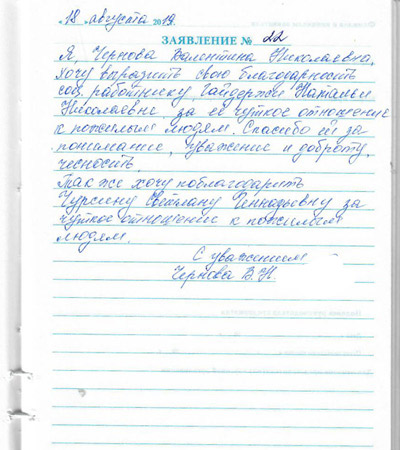 „18 „августа 2019
ЗАЯВЛЕНИЕ № 22
Я, Чернова Валентина Николаевна,
хочу выразить свою благодарность
соц. работнику, Гайдержи Наталье
Николаевне за её чуткое отношение
к пожилым людям. Спасибо ей за
понимание, уважение и доброту,
чесность.
Так же хочу поблагодарить
Чурсину Светлану Геннадьевну за
чуткое отношение к пожилым
людям.
С уважением
Чернова В.Н